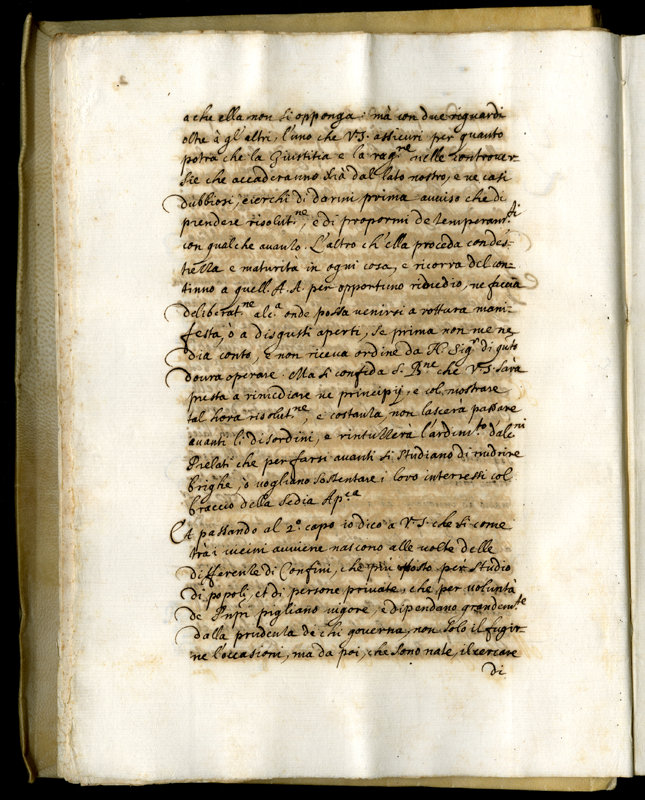 a che ella non si opponga: mà con due riguardi
oltre à gl'altri, l'uno che V.S. assicuri per quanto
potrà che la Giustitia e la rag.ne nelle controver-
sie che accaderanno stia dal lato nostro, e ne casi
dubbiosi, cerchi di darmi prima avviso che di
prendere risolut.ne, e di propormi de temperam.ti
con qualche avanzo. L'altro ch'ella proceda con des-
trezza e maturità in ogni cosa, e ricorra del con-
tinuo a quell. A.A. per opportuno rimedio, ne faccia
deliberat.ne alc.a onde possa venirsi a rottura mani-
festa, ò a disgusti aperti, se prima non me ne
dia conto, e non riceva ordine da N. Sig.r di q.to
dovrà operare. Ma si confida S. B.ne che V.S. sarà
presta a rimediare ne principij, e col mostrare
tal hora risolut.ne, e costanza non lascerà passare
avanti li disordini, e rintuzzerà l'ardim.to d'alc.ni
Prelati che per farsi avanti si studiano di nudrire
brighe, ò vogliano sostentare i loro interessi col
braccio della Sedia Ap.ca
Et passando al 2.o capo io dico a V.S. che si come
trà i vicini avviene nascono alle volte delle
differenze di Confini, che più tosto per studio
di popoli, et di persone private, che per voluntà
de Pnpi pigliano vigore, e dipendano grandem.te
dalla prudenza di chi governa, non solo il fugir-
ne l'occasioni, ma da poi, che sono nate, il cercare
di